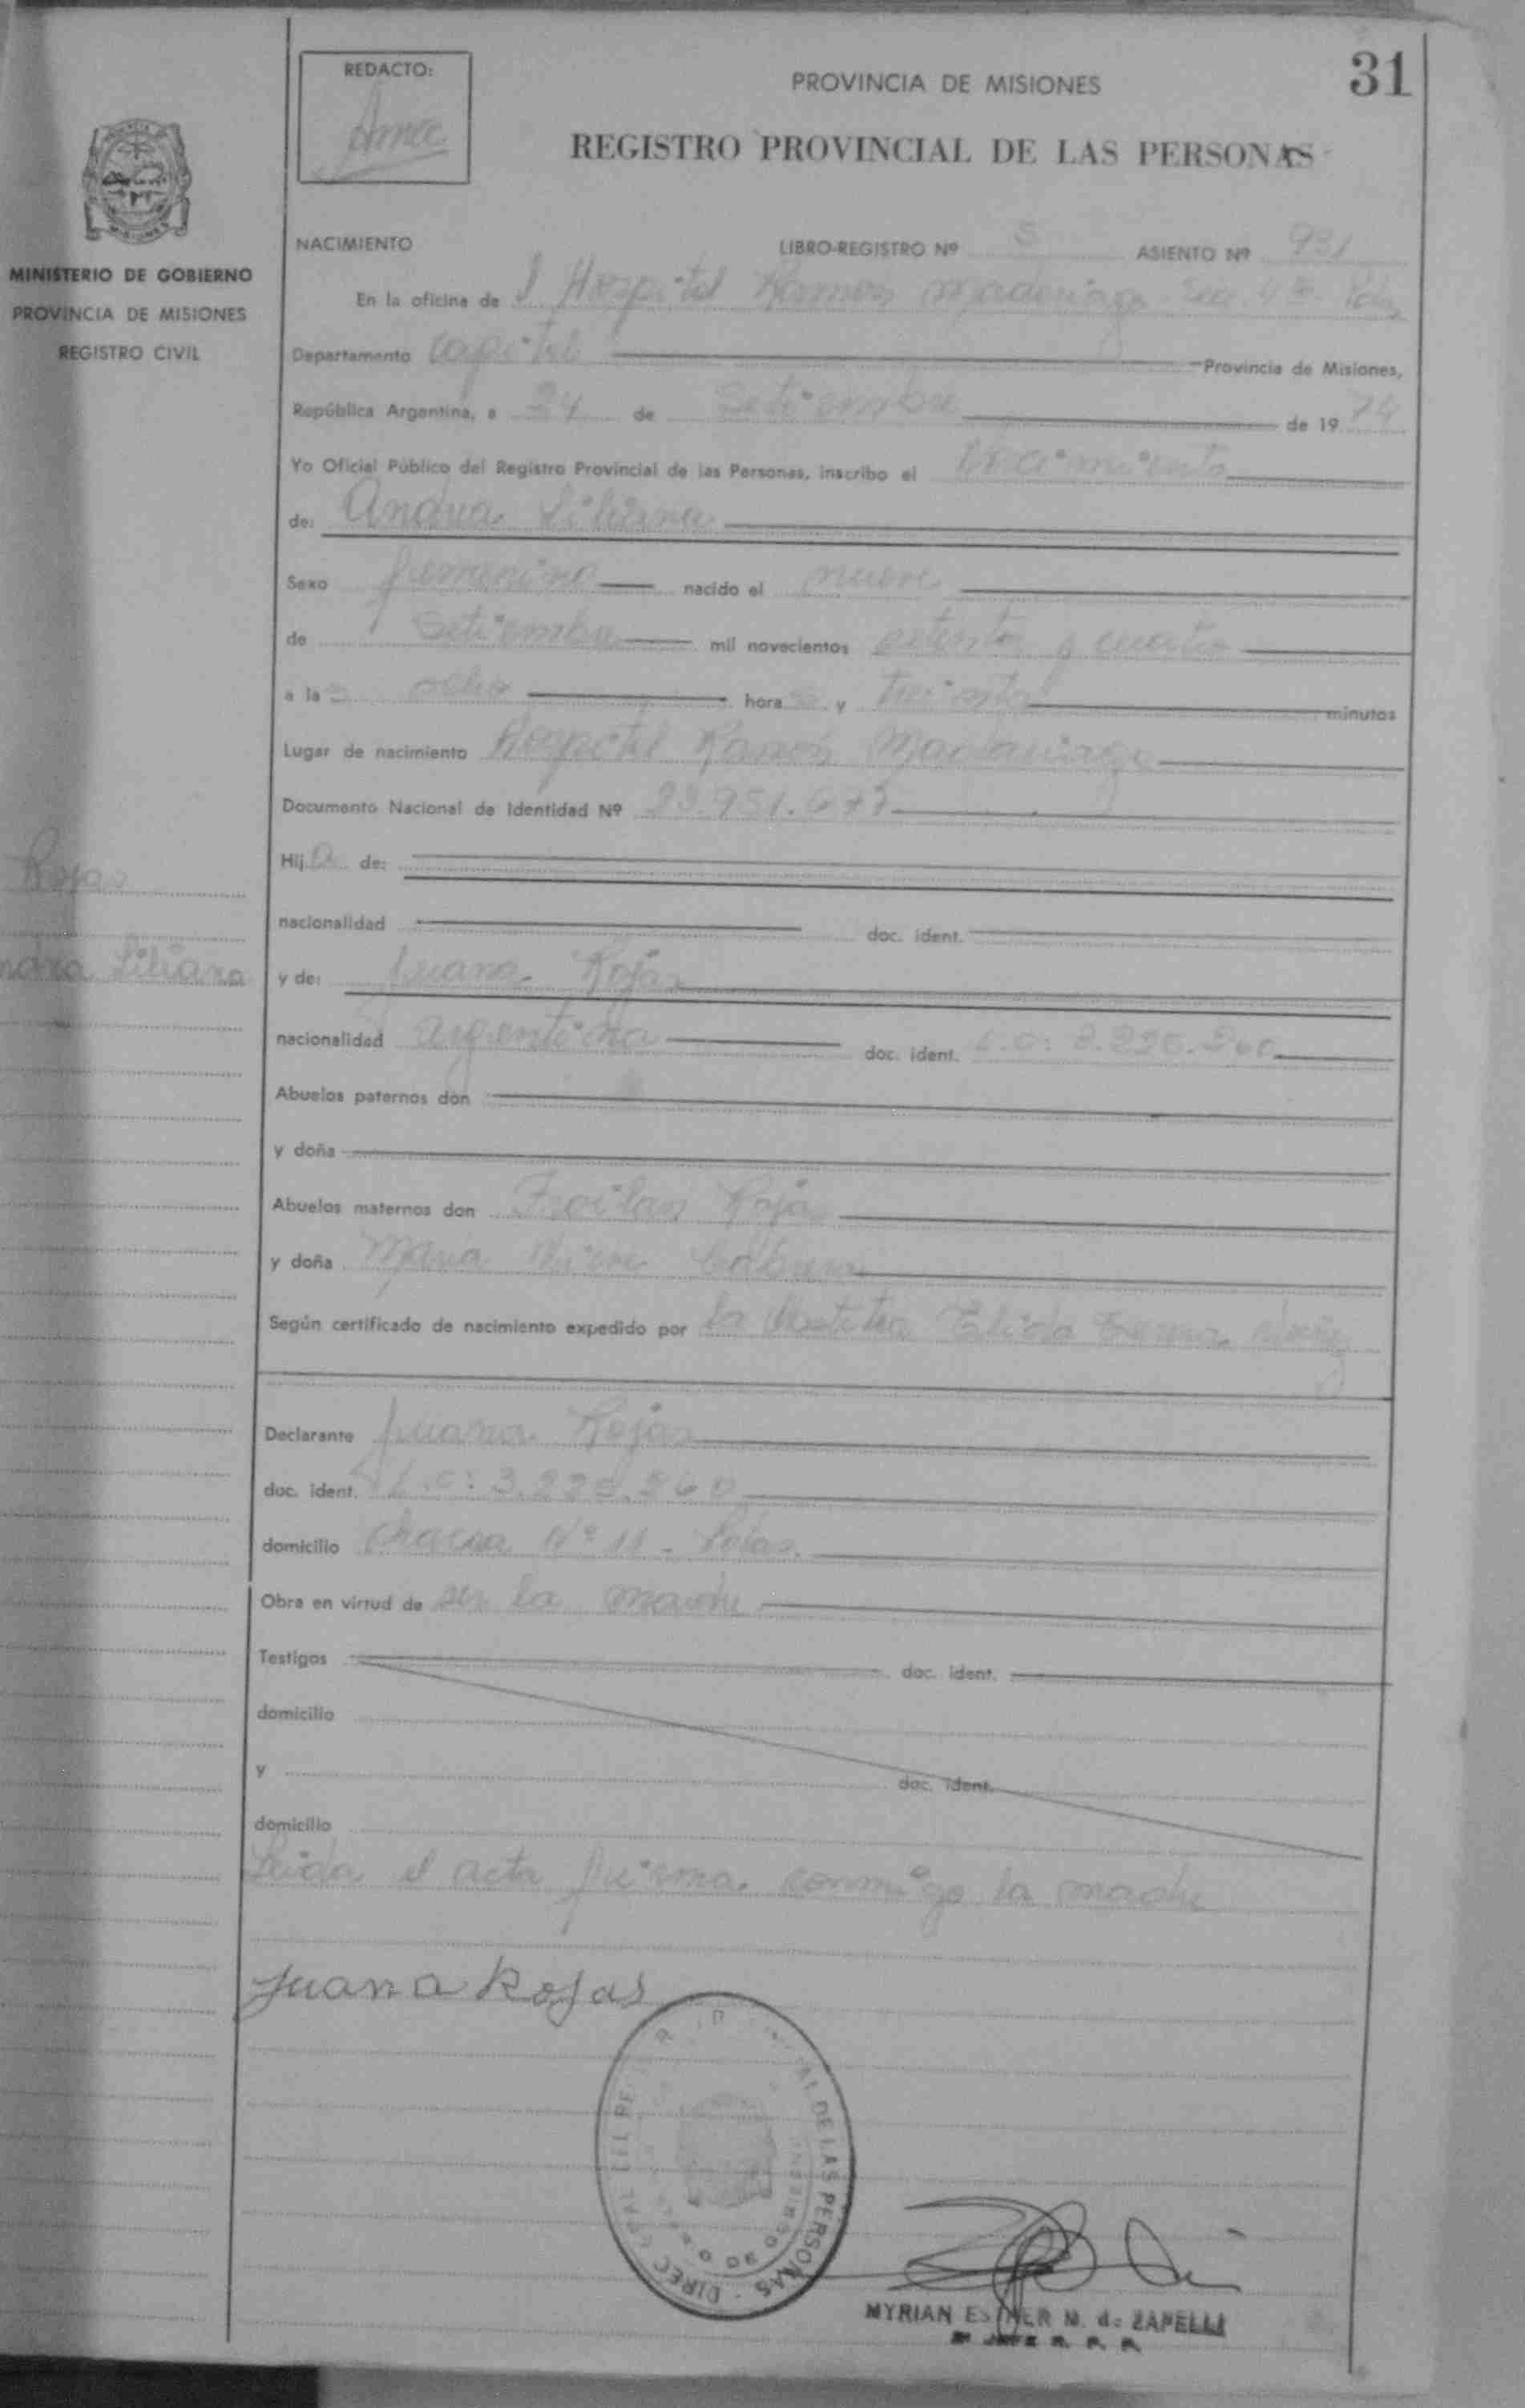 31
REDACTO:
PROVINCIA DE MISIONES
REGISTRO PROVINCIAL DE LAS PERSONAS
MINISTERIO DE GOBIERNO
PROVINCIA DE MISIONES
REGISTRO CIVIL
NACIMIENTO LIBRO-REGISTRO Nº 5 ASIENTO Nº 931
En la oficina de Hospital Ramón Madariaga Sec. 4ª
Departamento Capital Provincia de Misiones,
República Argentina, a 24 de Setiembre de 1974
Yo Oficial Público del Registro Provincial de las Personas, inscribo el Nacimiento
de: Liliana
Sexo femenino nacido el nueve
de Setiembre mil novecientos setenta y cuatro
a las ocho horas y treinta minutos
Lugar de nacimiento Hospital Ramón Madariaga
Documento Nacional de Identidad Nº 23.951.677
Hija de:
Rojas
nacionalidad doc. ident.
Liliana
y de: Juana Rojas
nacionalidad argentina doc. ident. L.C:
Abuelos paternos don
y doña
Abuelos maternos don Froilan Rojas
y doña Maria
Según certificado de nacimiento expedido por la Elida
Declarante Juana Rojas
doc. ident. L.C: 3.225.260
domicilio Chacra Nº 11 - Pdas.
Obra en virtud de ser la madre
Testigos doc. ident.
domicilio
y doc. ident.
domicilio
Leida el acta firma conmigo la madre
Juana Rojas
DE LAS PERSONAS - DIREC
MYRIAN ESTHER M. de ZAPELLI